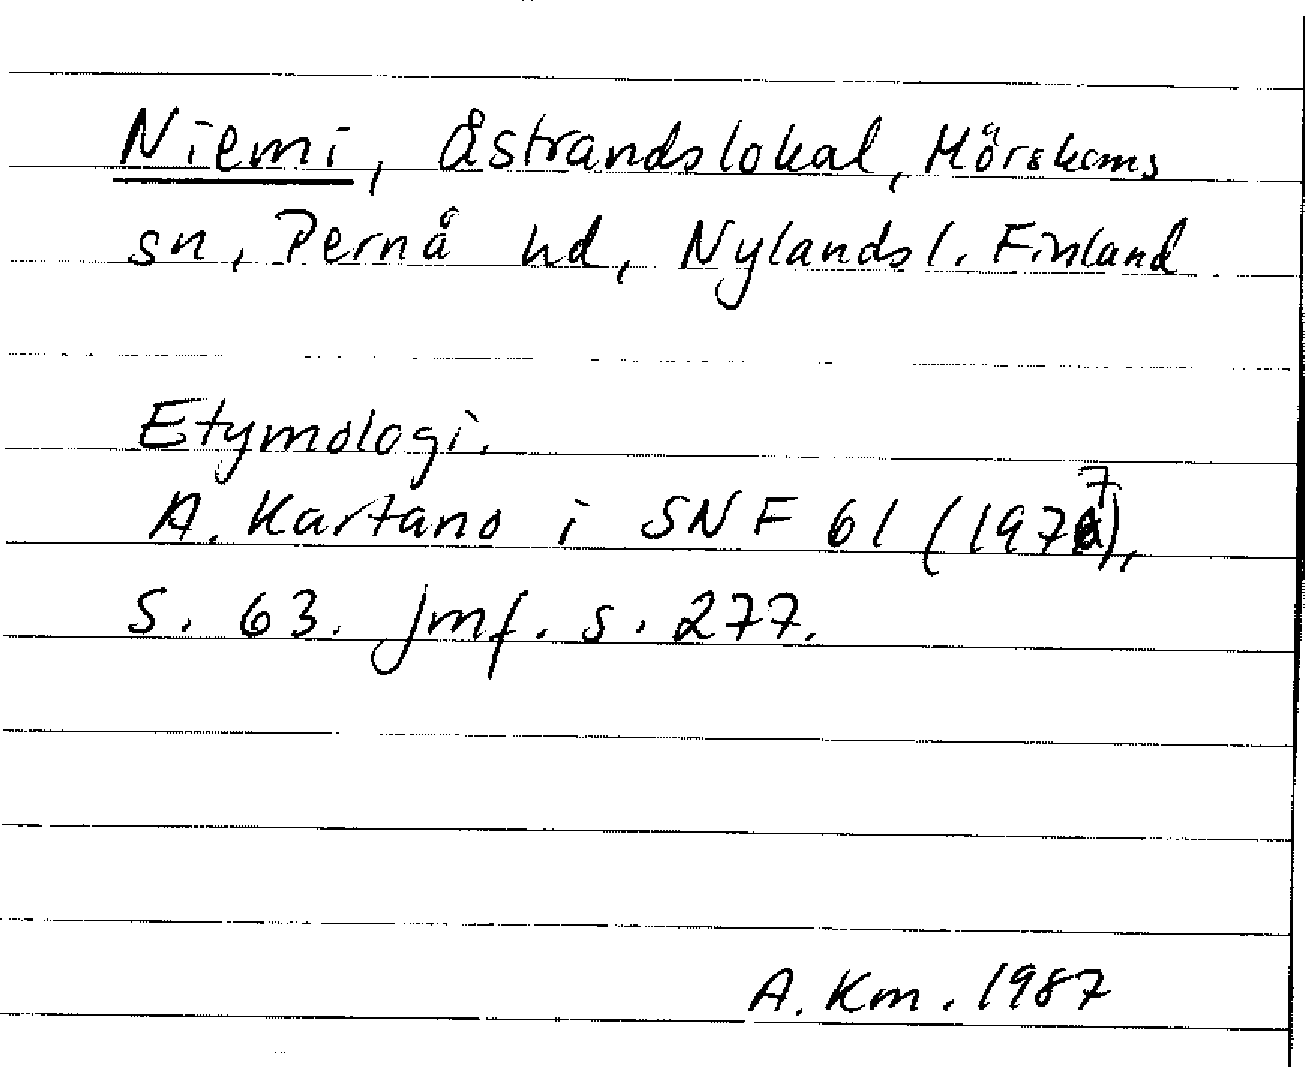 Niemi, åstrandslokal, Mörskoms
sn, Pernå hd, Nylands l. Finland
Etymologi.
A. Kartano i SNF 61 (1977),
s. 63. Jmf. s. 277.
A. Km. 1987